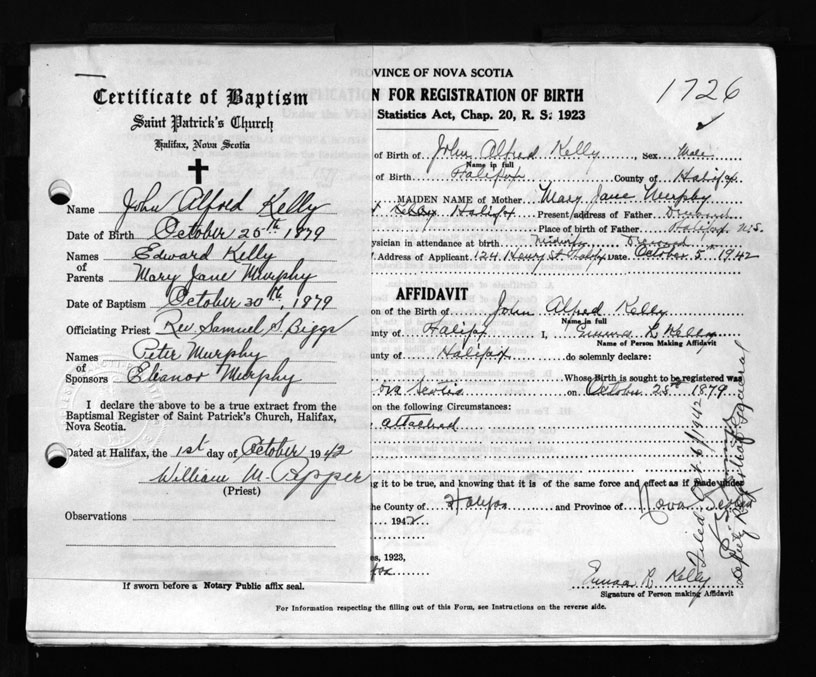 Certificate of Baptism
Saint Patrick's Church
Halifax, Nova Scotia
Name John Alfred Kelly
Date of Birth October 25th 1879
Names of Parents Edward Kelly
Mary Jane Murphy
Date of Baptism October 30th, 1879
Officiating Priest Rev. Samuel S. Biggs
Names of Sponsors Peter Murphy
Elianor Murphy
I declare the above to be a true extract from the
Baptismal Register of Saint Patrick's Church, Halifax,
Nova Scotia.
Dated at Halifax, the 1st day of October 1942
William M.
(Priest)
Observations
If sworn before a Notary Public affix seal.
VINCE OF NOVA SCOTIA
N FOR REGISTRATION OF BIRTH
Statistics Act, Chap. 20, R. S. 1923
1726
of Birth of John Alfred Kelly, Sex Male
Name in full
of Birth Halifax County of Halifax
MAIDEN NAME of Mother Mary Jane Murphy
Kelly Halifax Present address of Father Deceased
Place of birth of Father Halifax N.S.
ysician in attendance at birth Midwife Deceased
Address of Applicant 124 Henry St. Halifax Date October 5th 1942
AFFIDAVIT
on of the Birth of John Alfred Kelly
Name in full
nty of Halifax I, Emma R. Kelly
Name of Person Making Affidavit
County of Halifax do solemnly declare:
Whose Birth is sought to be registered was
ova Scotia on October 25th 1879
on the following Circumstances:
attached
g it to be true, and knowing that it is of the same force and effect as if made under
he County of Halifax and Province of Nova Scotia
1942
es, 1923,
fax
Emma R. Kelly
Signature of Person making Affidavit
Filed Oct. 6/1942
Deputy Registrar General
For Information respecting the filling out of this Form, see Instructions on the reverse side.